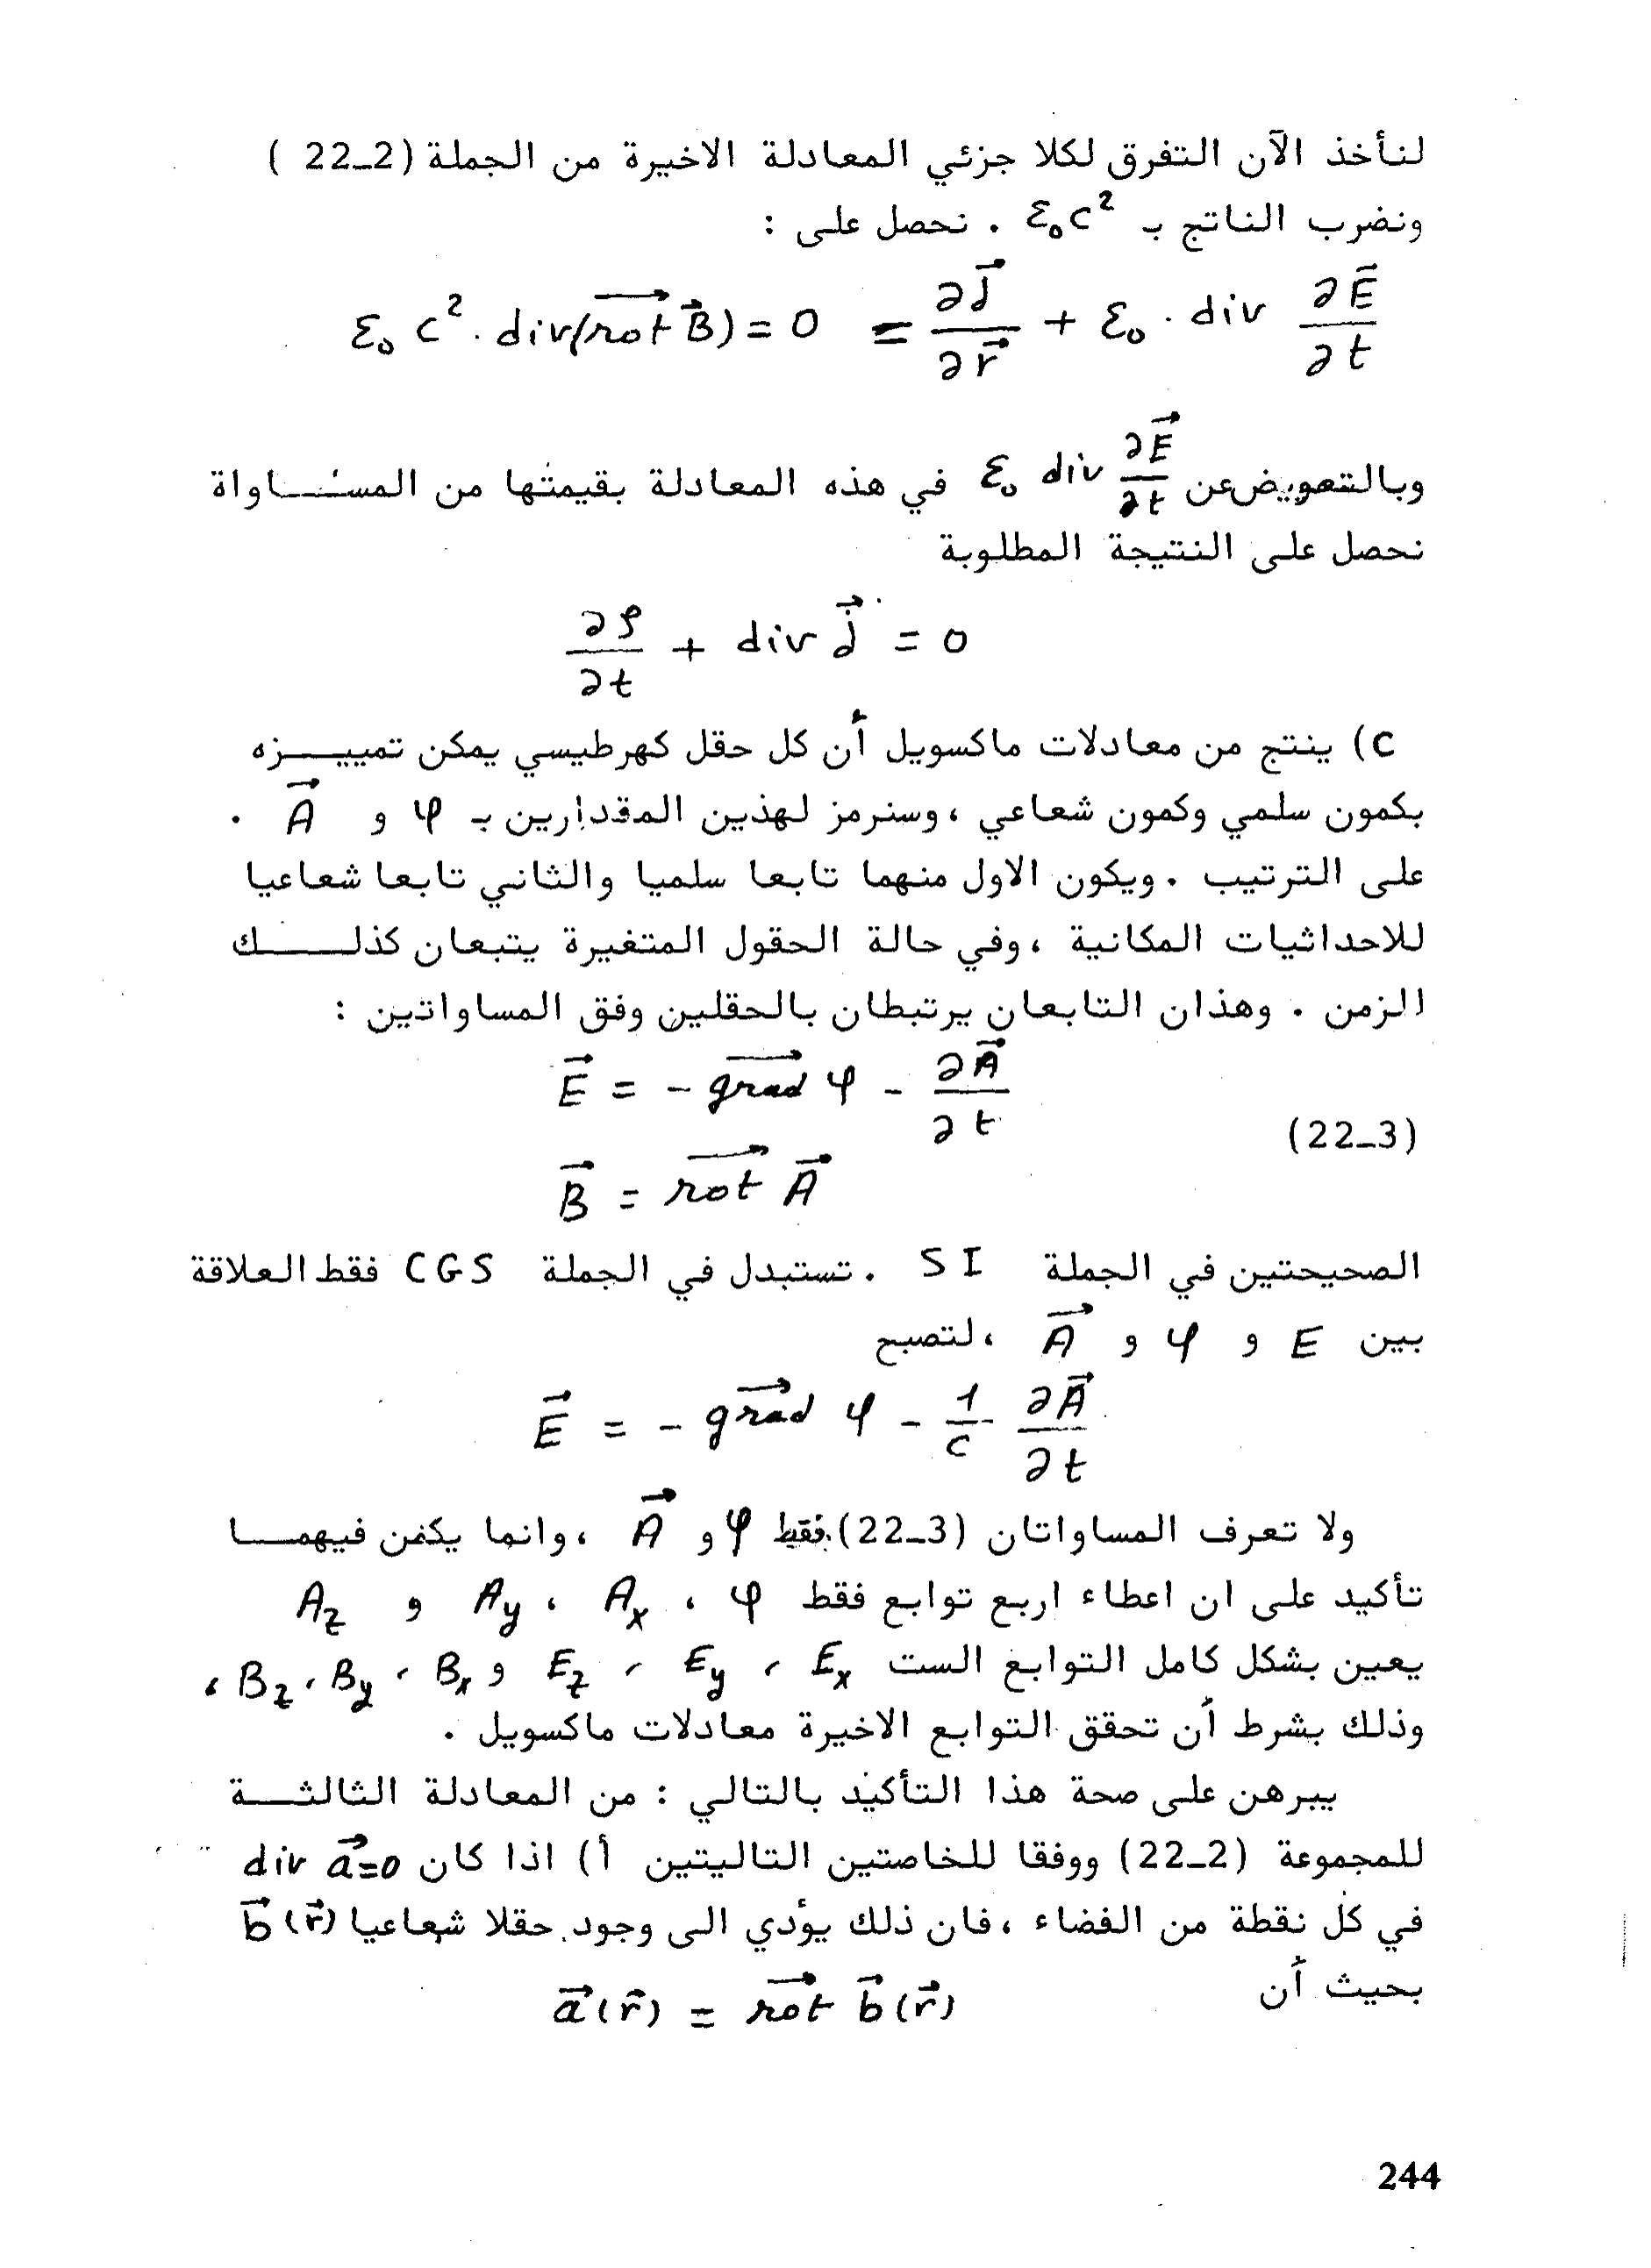 لنأخذ الآن التفرق لكلا جزئي المعادلة الاخيرة من الجملة (2_22 )
ونضرب الناتج بـ ε₀c² . نحصل على :
ε₀ c² . div(rot B⃗) = 0 = ∂j⃗/∂r⃗ + ε₀ . div ∂E⃗/∂t
وبالتعويض عن ε₀ div ∂E⃗/∂t في هذه المعادلة بقيمتها من المساواة
نحصل على النتيجة المطلوبة
∂ρ/∂t + div j⃗ = 0
c) ينتج من معادلات ماكسويل أن كل حقل كهرطيسي يمكن تمييزه
بكمون سلمي وكمون شعاعي ، وسنرمز لهذين المقدارين بـ φ و A⃗ .
على الترتيب . ويكون الاول منهما تابعا سلميا والثاني تابعا شعاعيا
للاحداثيات المكانية ، وفي حالة الحقول المتغيرة يتبعان كذلك
الزمن . وهذان التابعان يرتبطان بالحقلين وفق المساواتين :
E⃗ = - grad φ - ∂A⃗/∂t
(22_3)
B⃗ = rot A⃗
الصحيحتين في الجملة SI . تستبدل في الجملة CGS فقط العلاقة
بين E و φ و A⃗ ، لتصبح
E⃗ = - grad φ - 1/c ∂A⃗/∂t
ولا تعرف المساواتان (3_22) فقط φ و A⃗ ، وانما يكمن فيهما
تأكيد على ان اعطاء اربع توابع فقط φ ، Ax ، Ay و Az
يعين بشكل كامل التوابع الست Ex ، Ey ، Ez و Bx ، By ، Bz ،
وذلك بشرط أن تحقق التوابع الاخيرة معادلات ماكسويل .
يبرهن على صحة هذا التأكيد بالتالي : من المعادلة الثالثة
للمجموعة (2_22) ووفقا للخاصتين التاليتين أ) اذا كان div a⃗=0
في كل نقطة من الفضاء ، فان ذلك يؤدي الى وجود حقلا شعاعيا b⃗(r⃗)
بحيث أن
a⃗(r⃗) = rot b⃗(r⃗)
244